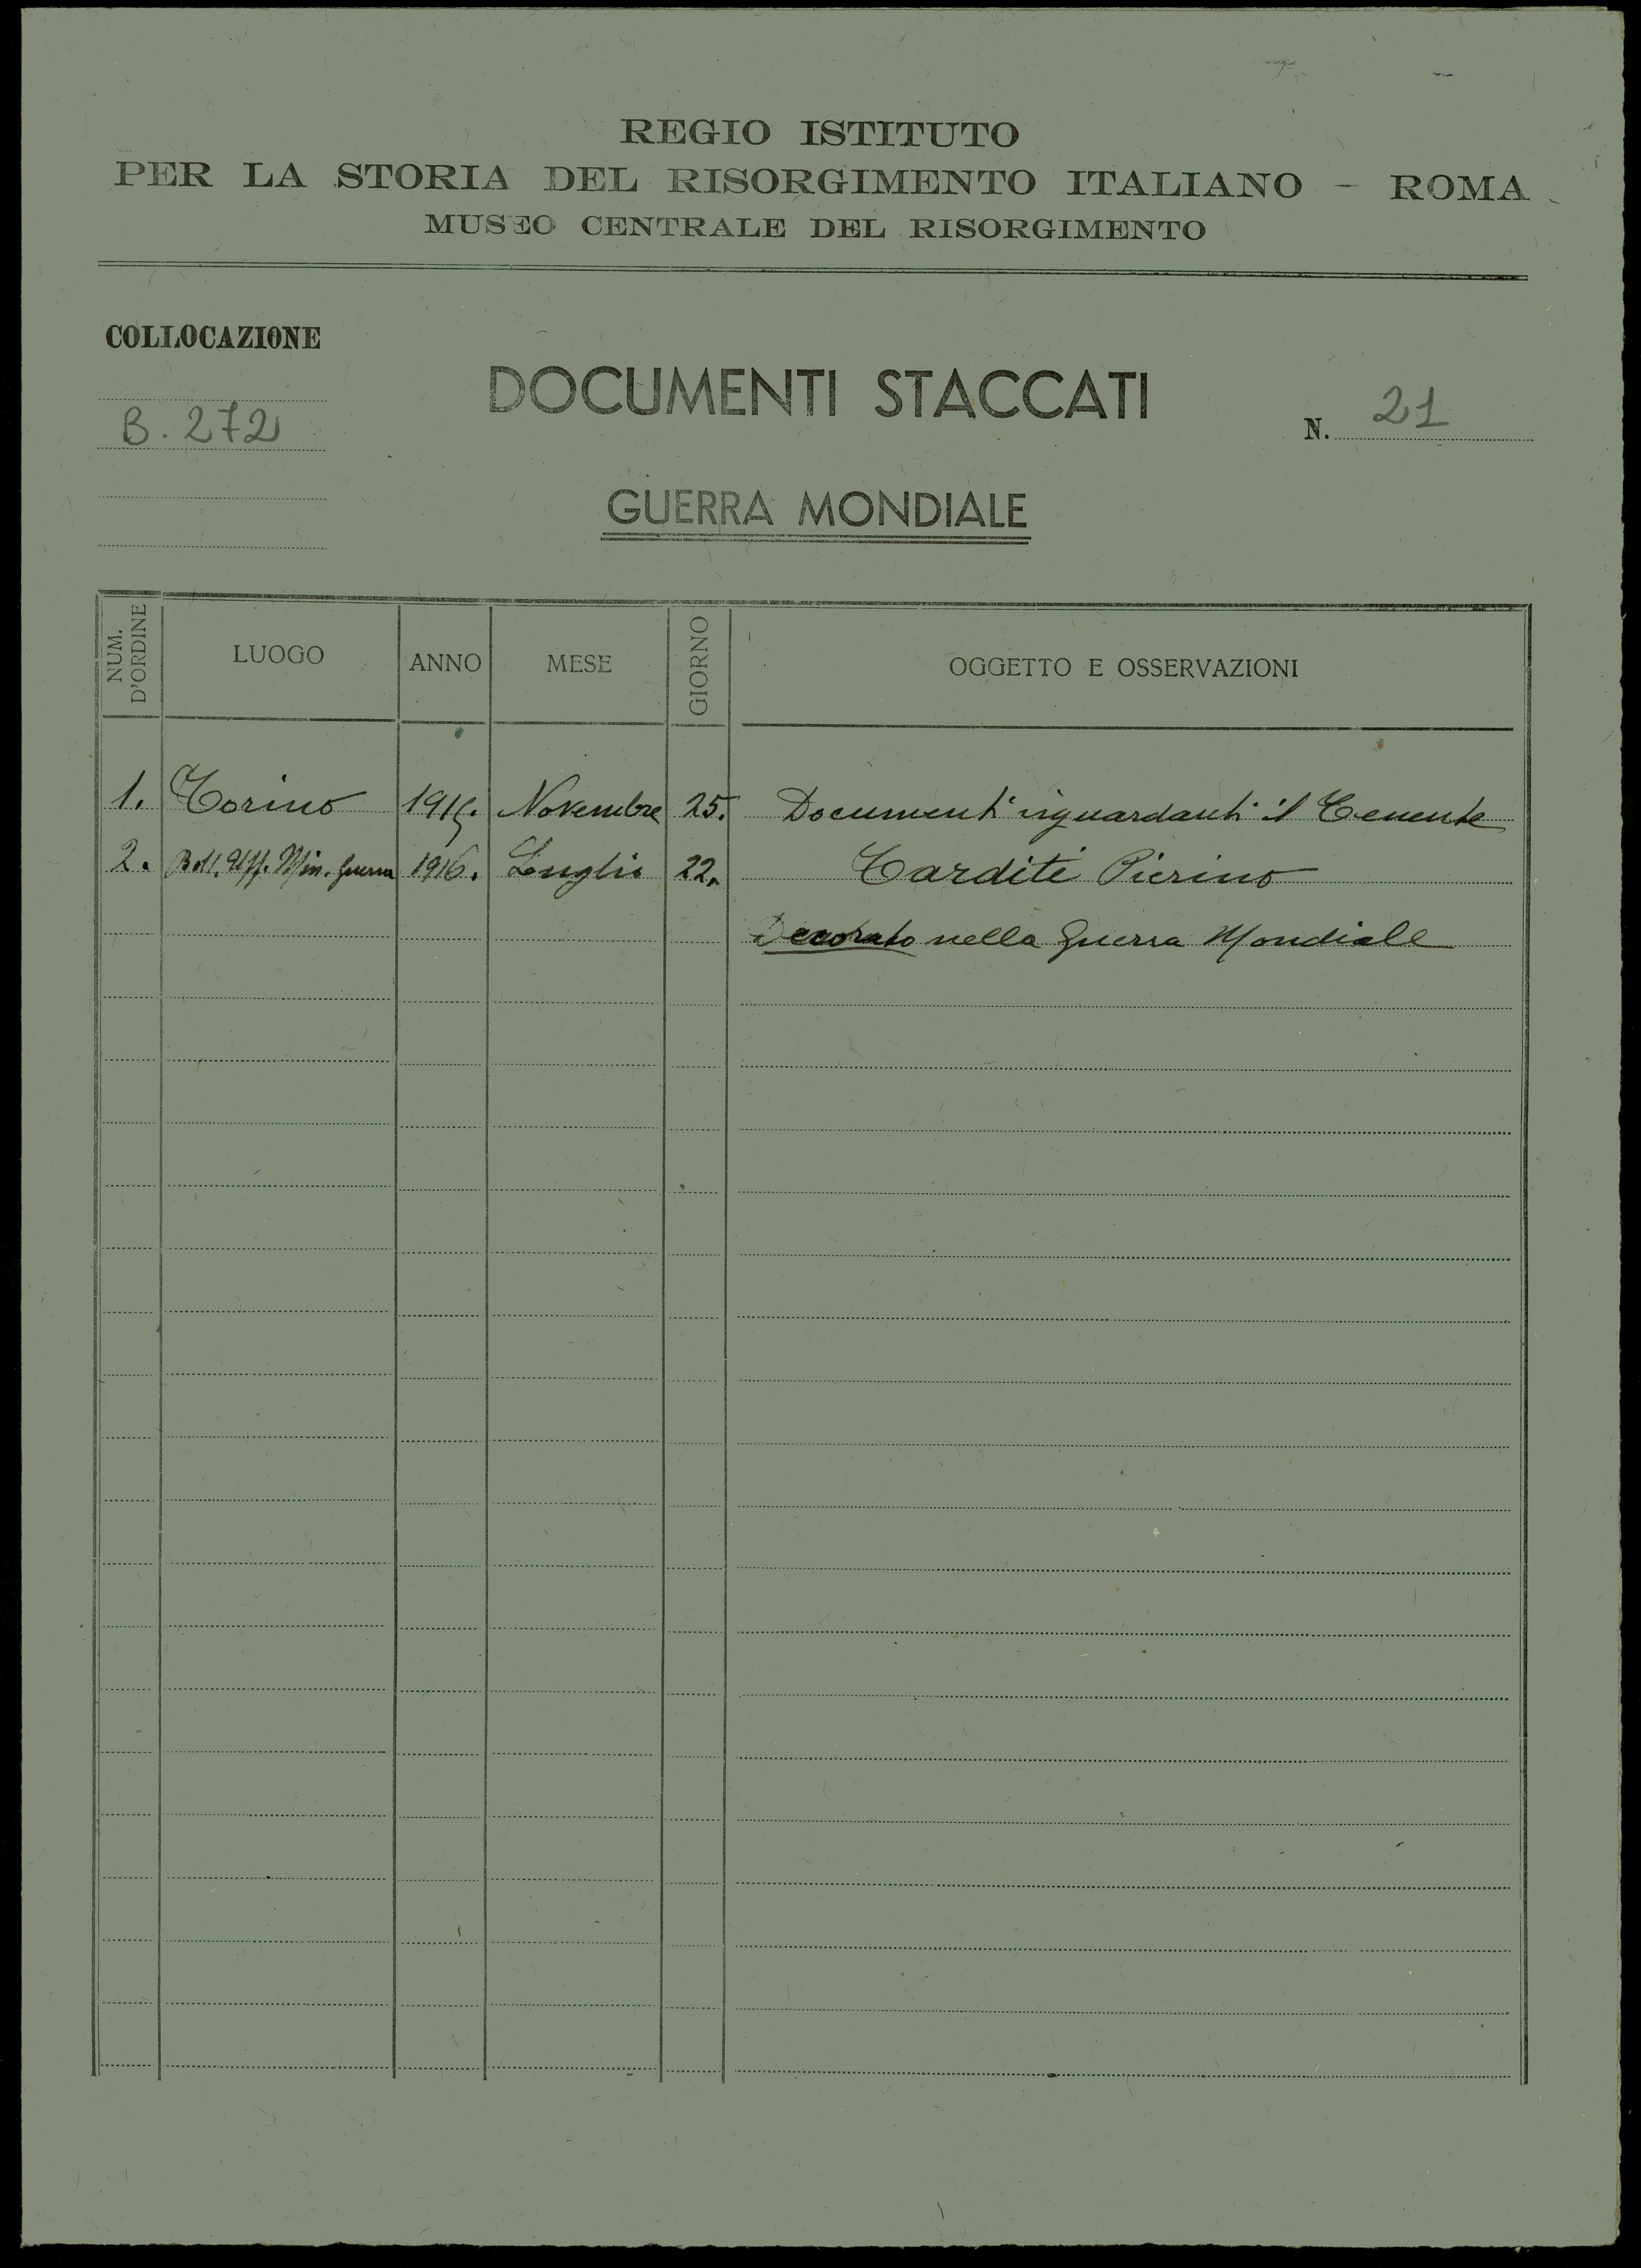 REGIO ISTITUTO
PER LA STORIA DEL RISORGIMENTO ITALIANO - ROMA
MUSEO CENTRALE DEL RISORGIMENTO
COLLOCAZIONE
B. 272
DOCUMENTI STACCATI
N. 21
GUERRA MONDIALE
NUM. D'ORDINE LUOGO ANNO MESE GIORNO OGGETTO E OSSERVAZIONI
1. Torino 1915. Novembre 25. Documenti riguardanti il Tenente
2. Boll. Uff. Min. Guerra 1916. Luglio 22. Tarditi Pierino
Decorato nella Guerra Mondiale